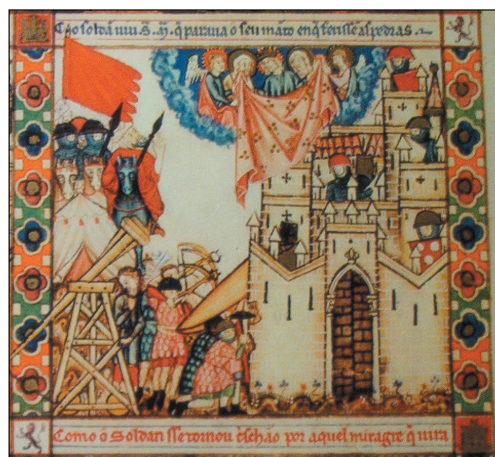 o soldã uiu S. M. q̃ paraua o seu mãto enq̃ feriss̃e as pedras
Como o Soldan sse tornou c̃schão por aquel miragre q̃ uira